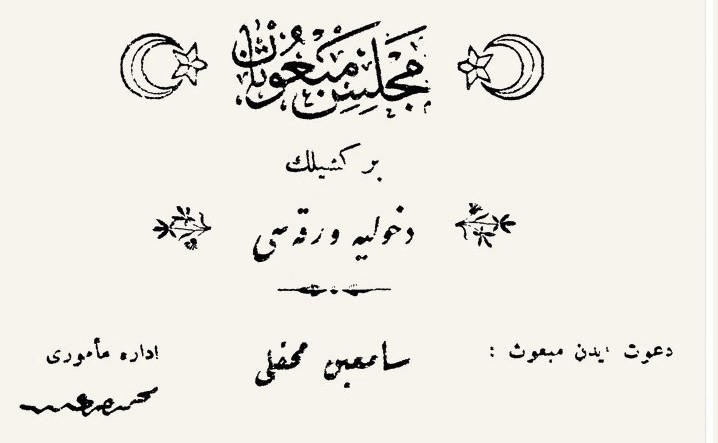 مجلس مبعوثان
بر كشيلك
دخوليه ورقه سی
دعوت ايدن مبعوث :
سامعين محفلی
اداره مأموری